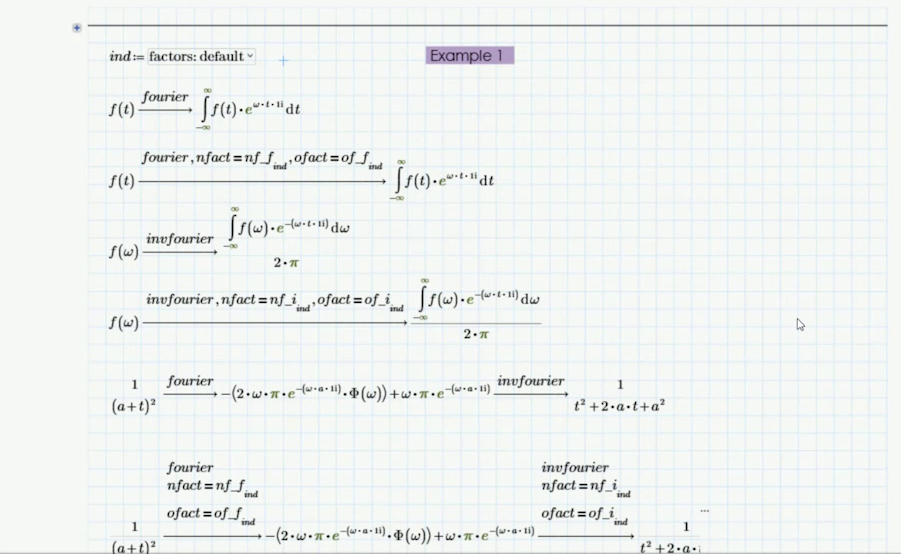 ind:= factors: default
Example 1
f(t) fourier → ∫_{-∞}^{∞} f(t)·e^{ω·t·1i} dt
f(t) fourier, nfact=nf_f_{ind}, ofact=of_f_{ind} → ∫_{-∞}^{∞} f(t)·e^{ω·t·1i} dt
f(ω) invfourier → ∫_{-∞}^{∞} f(ω)·e^{-(ω·t·1i)} dω
2·π
f(ω) invfourier, nfact=nf_i_{ind}, ofact=of_i_{ind} → ∫_{-∞}^{∞} f(ω)·e^{-(ω·t·1i)} dω
2·π
1/(a+t)² fourier → -(2·ω·π·e^{-(ω·a·1i)}·Φ(ω))+ω·π·e^{-(ω·a·1i)} invfourier → 1/(t²+2·a·t+a²)
fourier invfourier
nfact=nf_f_{ind} nfact=nf_i_{ind}
ofact=of_f_{ind} ofact=of_i_{ind} ...
1/(a+t)² → -(2·ω·π·e^{-(ω·a·1i)}·Φ(ω))+ω·π·e^{-(ω·a·1i)} → 1/(t²+2·a·